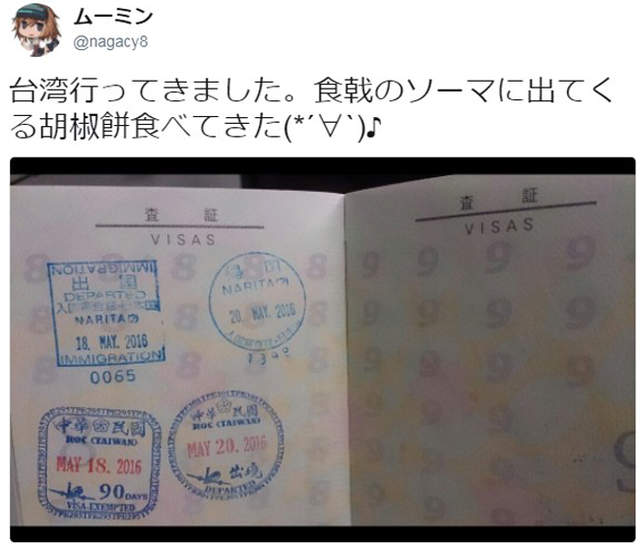 ムーミン
@nagacy8
台湾行ってきました。食戟のソーマに出てく
る胡椒餅食べてきた(*´∀`)♪
査 証
VISAS
査 証
VISAS
IMMIGRATION
出 国
DEPARTED
NARITA(2)
18. MAY. 2016
IMMIGRATION
0065
NARITA
20. MAY. 2016
中華民國
ROC (TAIWAN)
MAY 18. 2016
90 DAYS
VISA-EXEMPTED
中華民國
ROC (TAIWAN)
MAY 20. 2016
出境
DEPARTED
8 8 8 8
9 9 9 9